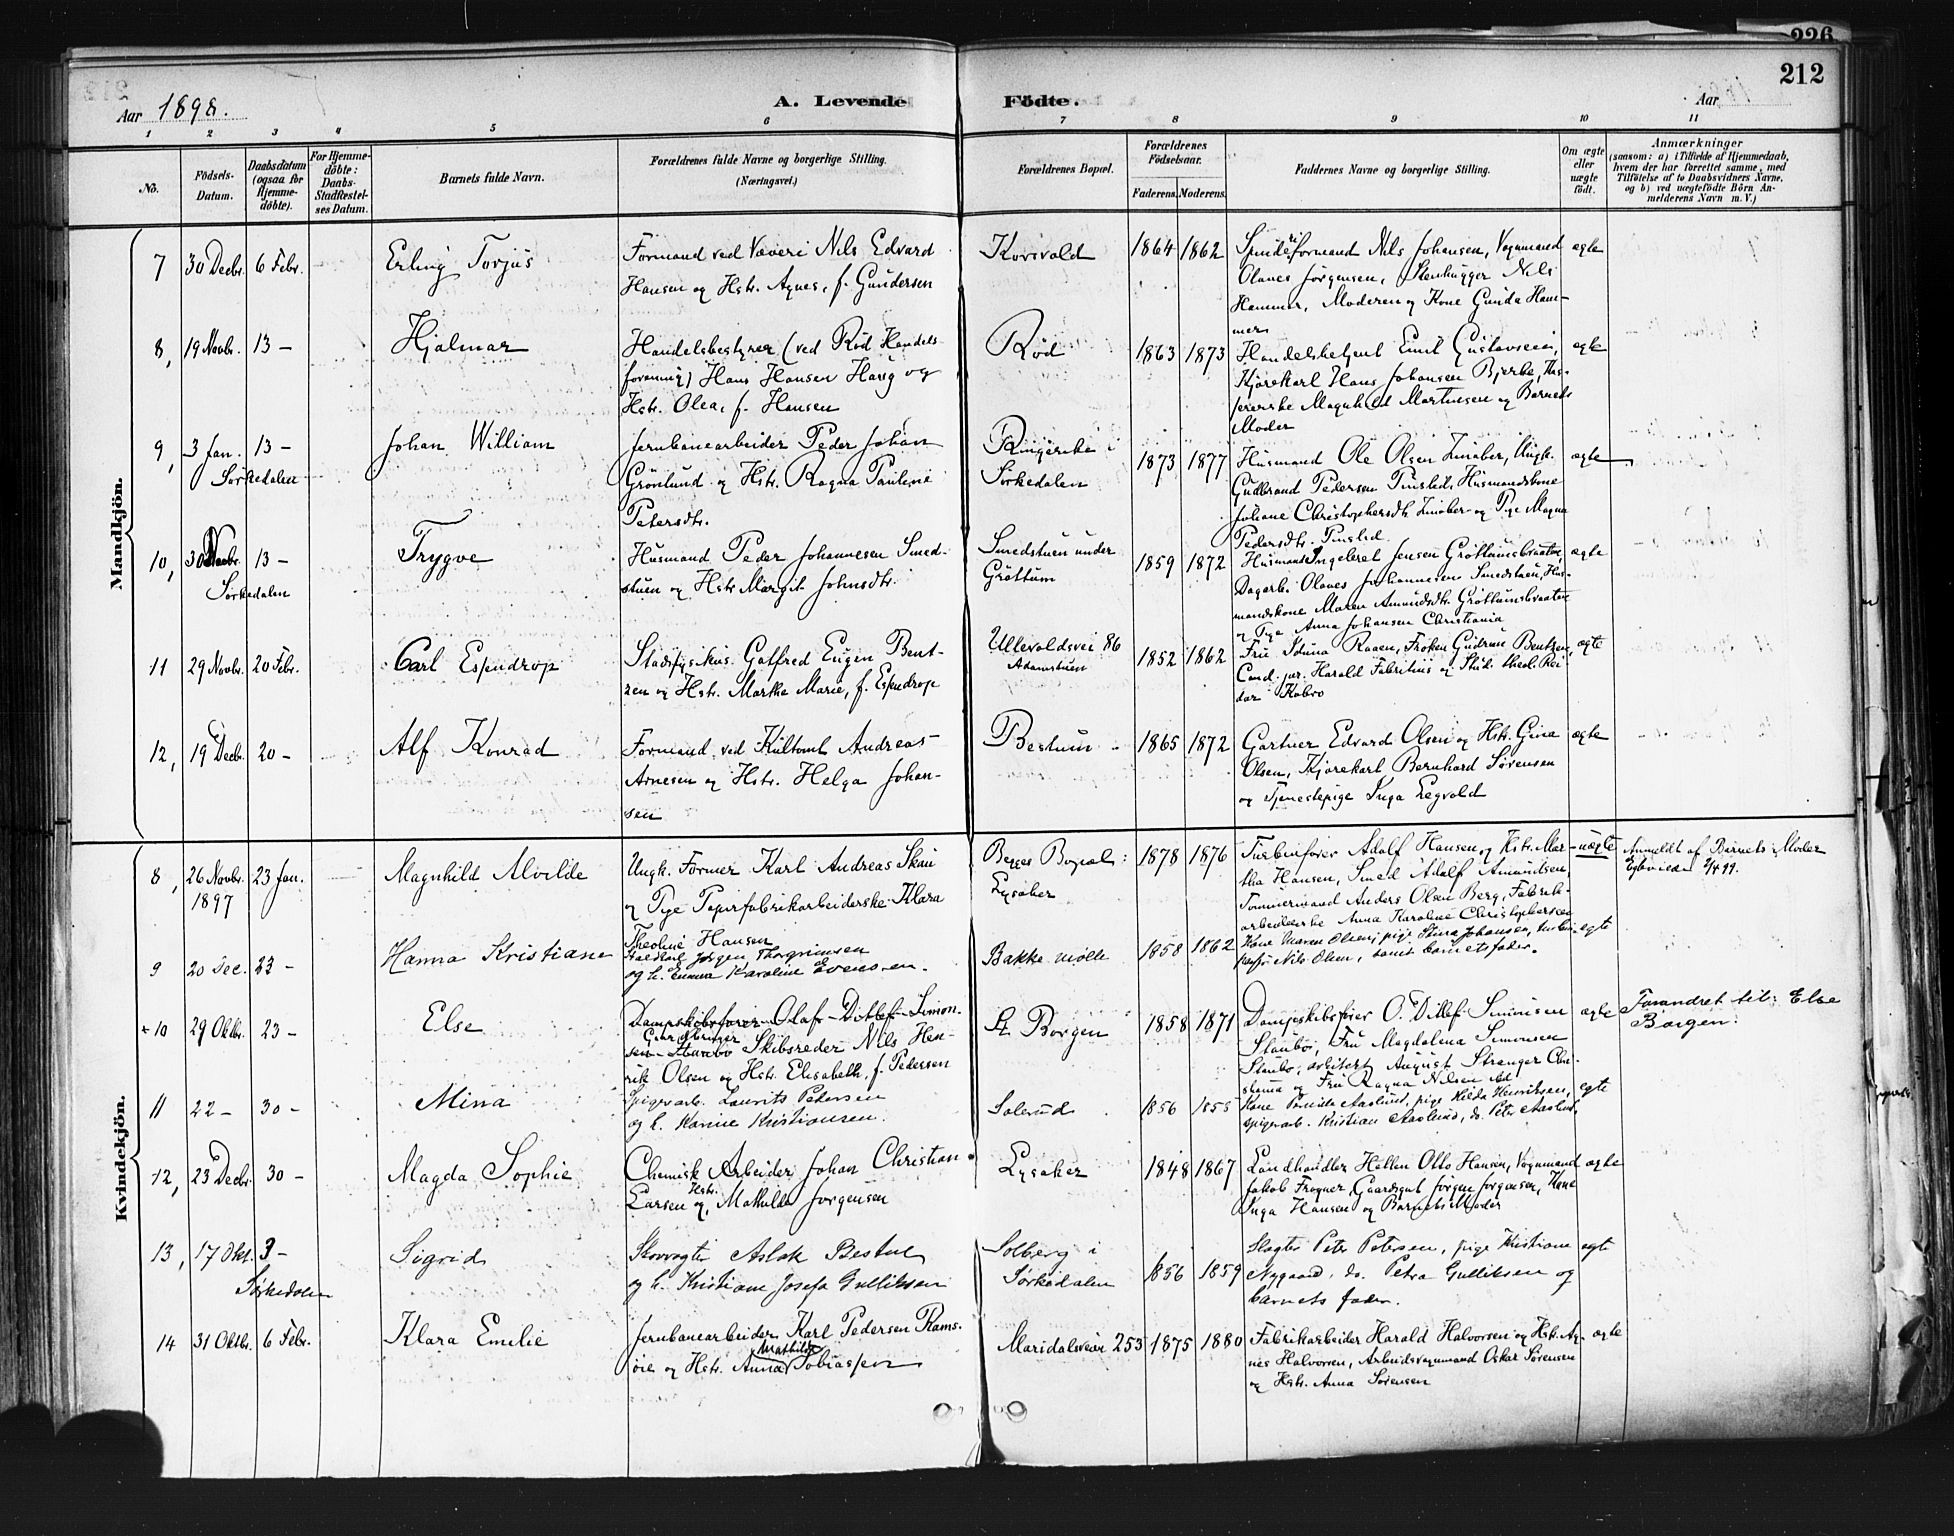 226
212
Aar 1898.
A. Levende Födte.
Aar
1 2 3 4 5 6 7 8 9 10 11
No.
Födsels-Datum.
Daabsdatum (ogsaa for Hjemme-döbte).
For Hjemme-döbte: Daabs-Stadfæstel-ses Datum.
Barnets fulde Navn.
Forældrenes fulde Navne og borgerlige Stilling. (Næringsvei.)
Forældrenes Bopæl.
Forældrenes Födselsaar.
Faderens. Moderens.
Faddernes Navne og borgerlige Stilling.
Om ægte eller uægte födt.
Anmærkninger
(saasom: a) i Tilfælde af Hjemmedaab,
hvem der har forrettet samme, med
Tilföielse af to Daabsvidners Navne,
og b) ved uægtefödte Börn An-
melderens Navn m. V.)
Mandkjön.
7 30 Decbr. 6 Febr. Erling Torjus
Formand ved Væveri Nils Edvard
Hansen og Hstr. Agnes, f. Gundersen
Korsvold 1864 1862
Spinderiformand Nils Johansen, Vognmand
Olaves Jørgensen, Stenhugger Nils
Hammer, Moderen og Kone Gunda Ham-
mer
ægte
8, 19 Novbr. 13 – Hjalmar
Handelsbestyrer (ved Röd Handels-
forening) Hans Hansen Haug og
Hstr. Olea, f. Hansen
Röd 1863 1873
Handelsbetjent Emil Gustavsen,
Kjørekarl Hans Johansen Bjerke,
Magnhild Martinsen og Barnets
Moder
ægte
9, 3 Jan. 13 – Johan William
Sørkedalen
Jernbanearbeider Peder Johan
Grönlund og Hstr. Ragna Pauline
Petersdtr.
Ringerike i
Sørkedalen
1873 1877
Husmand Ole Olsen Zinober, Ungk.
Gudbrand Pedersen Tinslid, Husmandskone
Johane Christophersdtr. Zinober og Pige Magna
Pedersdtr. Tinslid
ægte
10, 30 Novbr. 13 – Trygve
Sørkedalen
Husmand Peder Johannesen Smed-
stuen og Hstr. Margit Johnsdtr.
Smedstuen under
Gröttum
1859 1872
Husmand Ingebret Jensen Gröttumsbraaten,
Dagarb. Olaves Johannesen Smedstuen, Hus-
mandskone Maren Amundsdtr. Gröttumsbraaten
og Pige Anna Johansen Christiania
ægte
11 29 Novbr. 20 Febr. Carl Espendrop
Stadsfysikus Gotfred Eugen Bent-
zen og Hstr. Marthe Marie, f. Espendrop
Ullevoldsvei 86
Adamstuen
1852 1862
Fru Iduna Raaen, Frøken Gudrun Bentzen,
Cand. jur. Harald Fabritius og Stud. theol. Rei-
dar Kobro
ægte
12, 19 Decbr. 20 – Alf Konrad
Formand ved Andreas
Arnesen og Hstr. Helga Johan-
sen
Bestum 1865 1872
Gartner Edvard Olsen og Hstr. Gina
Olsen, Kjørekarl Bernhard Sørensen
og Tjenestepige Inga Legvold
ægte
Kvindekjön.
8, 26 Novbr. 23 Jan. Magnhild Alvilde
1897
Ungk. Former Karl Andreas Skau
og Pige Papirfabrikarbeiderske Klara
Theoline Hansen
Begges Bopæl:
Lysaker
1878 1876
Turbinfører Adolf Hansen og Hstr. Mar-
tha Hansen, Smed Adolf Amundsen,
Tømmermand Anders Olsen Berg, Fabrik-
arbeiderske Anna Karoline Christophersen
uægte
Anmeldt af Barnets Moder
2/4 99.
9 20 Dec. 23 – Hanna Kristiane
Staldkarl Jørgen Thorgrimsen
og h. Emma Karoline Evensen.
Bakke mølle 1858 1862
Kone Maren Olsen, pige Stina Johansen,
Nils Olsen, samt barnets fader.
egte
+10 29 Oktbr. 23 – Else
Dampskibsfører Olaf Ditlef Simon-
sen Staubo Skibsreder Nils Hen-
rik Olsen og Hstr. Elisabeth, f. Pedersen
St. Borgen 1858 1871
Dampskibsfører O. Ditlef Simonsen
Staubo, Fru Magdalena Simonsen
Staubo, arkitekt August Stranger Chri-
stiania og Fru Ragna Nilsen ibd.
ægte
Forandret til: Else
Borgen.
11 22 – 30 – Mina
Spigerarb. Laurits Pedersen
og h. Karine Kristiansen.
Solerud 1856 1855
Kone Aaslund, pige Hilda Henriksen,
spigerarb. Kristian Aaslund, do. Peter Aaslund.
egte
12, 23 Decbr. 30 – Magda Sophie
Chemisk Arbeider Johan Christian
Larsen og Hstr. Mathilde Jorgensen
Lysaker 1848 1867
Landhandler Hellen Otto Hansen, Vognmand
Jakob Frogner, Gaardsgut Jørgen Jørgensen, Kone
Inga Hansen og Barnets Moder
ægte
13, 17 Okt. 3 – Sigrid
Sørkedalen
Skovvogter Aslak Bestul
og h. Kristiane Josefa Gulliksen
Solberg i
Sørkedalen
1856 1859
Slagter Peter Petersen, pige Kristiane
Nygaard, do. Petra Gulliksen og
barnets fader.
egte
14 31 Oktbr. 6 Febr. Klara Emilie
Jernbanearbeider Karl Pedersen Rams-
öie og Hstr. Anna Mathilde Tobiassen
Maridalsveien 253 1875 1880
Fabrikarbeider Harald Halvorsen og Hstr. Ag-
nes Halvorsen, Arbeidsvognmand Oskar Sörensen
og Hstr. Anna Sörensen
ægte